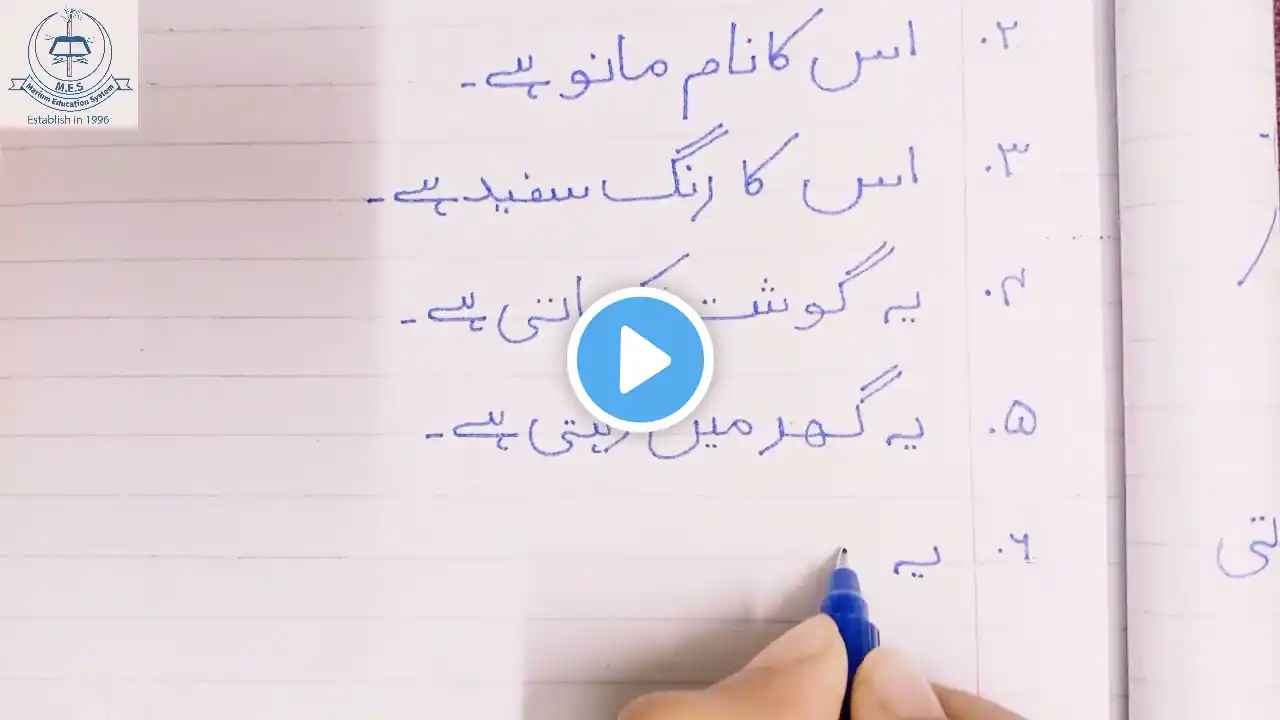 M.E.S
Marium Education System
Establish in 1996
۲. اس کا نام مانو ہے۔
۳. اس کا رنگ سفید ہے۔
۴. یہ گوشت کھاتی ہے۔
۵. یہ گھر میں رہتی ہے۔
۶. یہ
تی